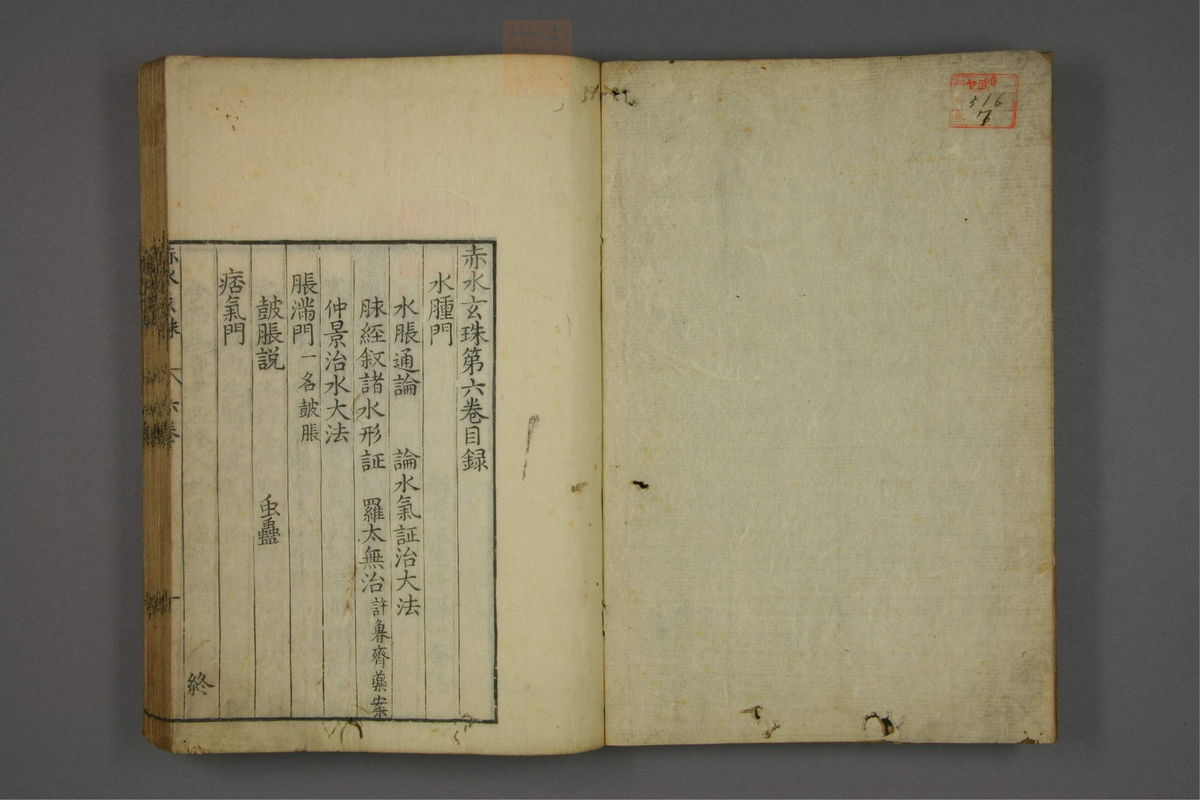 武
516
7
赤水玄珠第六卷目録
水腫門
水脹通論 論水氣証治大法
脉經叙諸水形証 羅太無治許魯齊藥案
仲景治水大法
脹滿門一名皷脹
皷脹説 虫蠱
痞氣門
終
赤水玄珠 六卷 一